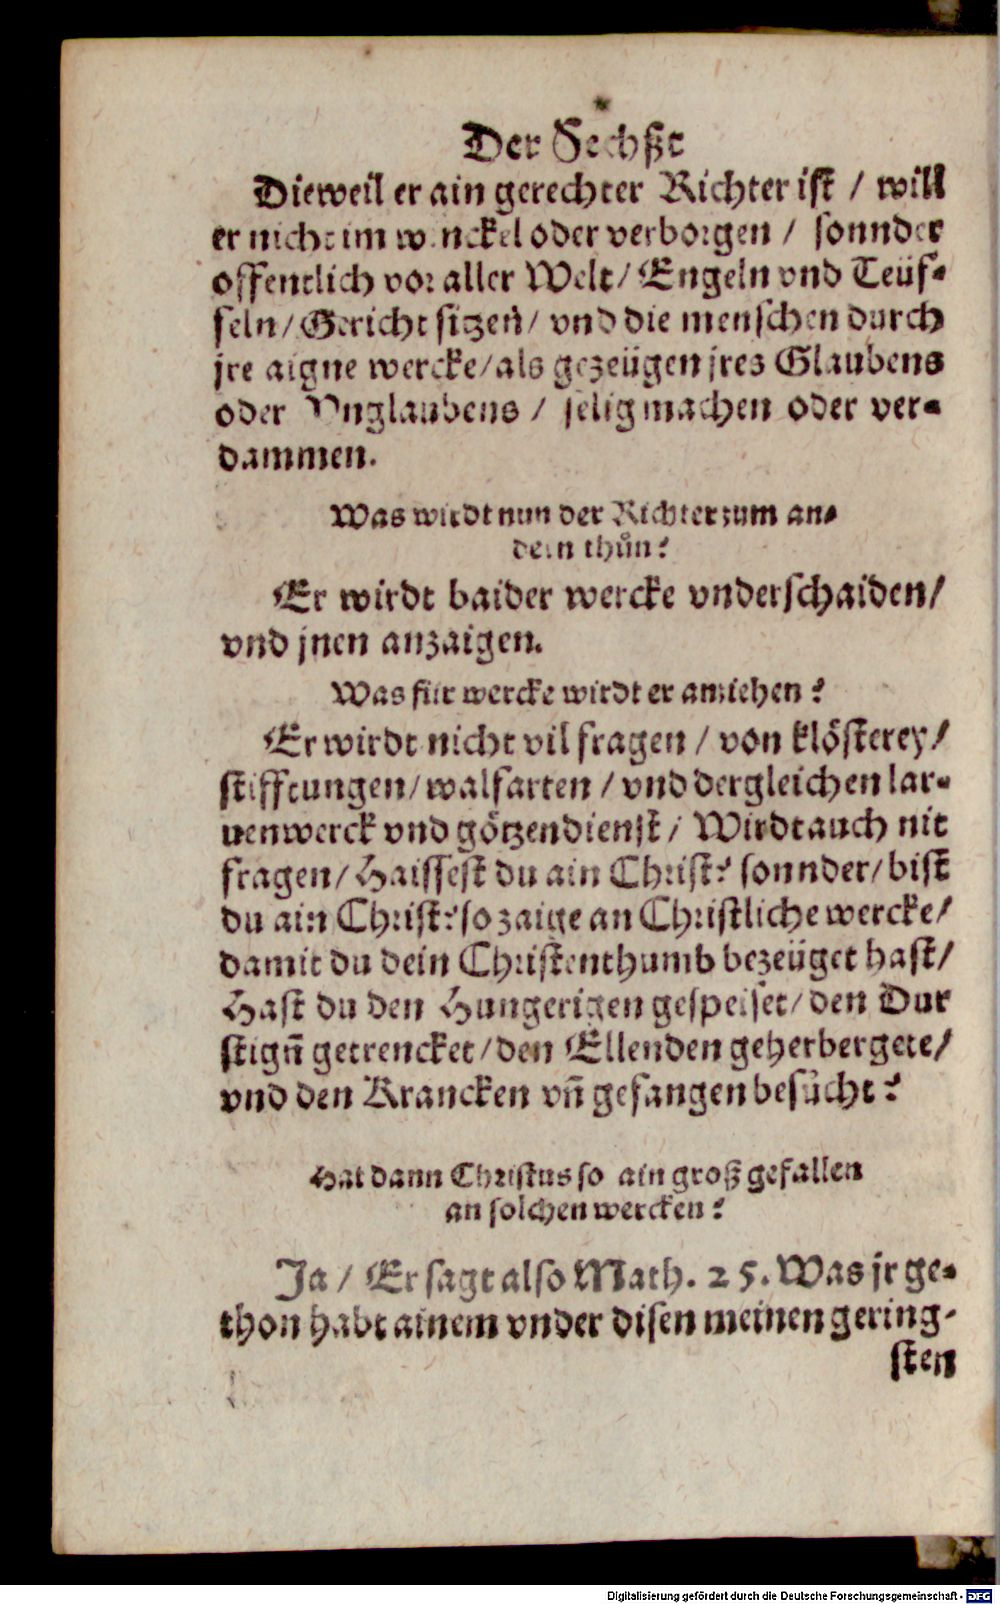 Der Sechßt
Dieweil er ain gerechter Richter ist / will
er nicht im winckel oder verborgen / sonnder
offentlich vor aller Welt / Engeln vnd Teüf-
feln / Gericht sitzen / vnd die menschen durch
jre aigne wercke / als gezeügen jres Glaubens
oder Vnglaubens / selig machen oder ver-
dammen.
Was wirdt nun der Richter zum an-
dern thůn?
Er wirdt baider wercke vnderschaiden /
vnd jnen anzaigen.
Was für wercke wirdt er anziehen?
Er wirdt nicht vil fragen / von klösterey /
stifftungen / walfarten / vnd dergleichen lar-
uenwerck vnd götzendienst / Wirdt auch nit
fragen / Haissest du ain Christ? sonnder / bist
du ain Christ? so zaige an Christliche wercke /
damit du dein Christenthumb bezeüget hast /
Hast du den Hungerigen gespeiset / den Dur
stigñ getrencket / den Ellenden geherbergete /
vnd den Krancken vñ gefangen besůcht?
Hat dann Christus so ain groß gefallen
an solchen wercken?
Ja / Er sagt also Math. 25. Was jr ge-
thon habt ainem vnder disen meinen gering-
sten
Digitalisierung gefördert durch die Deutsche Forschungsgemeinschaft - DFG